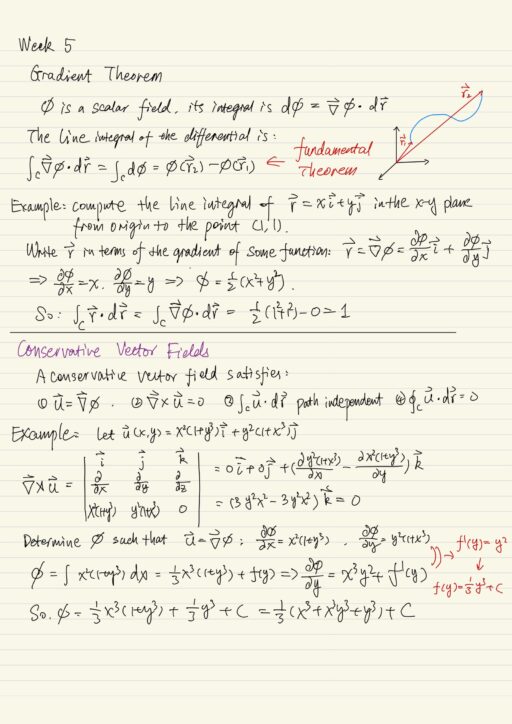 Week 5
Gradient Theorem
ϕ is a scalar field, its integral is dϕ = ∇⃗ϕ · dr⃗
The line integral of the differential is:
∫_C ∇⃗ϕ · dr⃗ = ∫_C dϕ = ϕ(r⃗₂) − ϕ(r⃗₁) ← fundamental Theorem
r⃗₁ r⃗₂
Example: compute the line integral of r⃗ = xi⃗ + yj⃗ in the x-y plane
from origin to the point (1,1).
Write r⃗ in terms of the gradient of some function: r⃗ = ∇⃗ϕ = ∂ϕ/∂x i⃗ + ∂ϕ/∂y j⃗
⇒ ∂ϕ/∂x = x, ∂ϕ/∂y = y ⇒ ϕ = ½(x²+y²).
So: ∫_C r⃗ · dr⃗ = ∫_C ∇⃗ϕ · dr⃗ = ½(1²+1²) − 0 = 1
Conservative Vector Fields
A conservative vector field satisfies:
① u⃗ = ∇⃗ϕ. ② ∇⃗×u⃗ = 0 ③ ∫_C u⃗ · dr⃗ path independent ④ ∮_C u⃗ · dr⃗ = 0
Example: let u⃗(x,y) = x²(1+y³)i⃗ + y²(1+x³)j⃗
∇⃗×u⃗ = | i⃗ j⃗ k⃗ | = 0i⃗ + 0j⃗ + (∂y²(1+x³)/∂x − ∂x²(1+y³)/∂y) k⃗
| ∂/∂x ∂/∂y ∂/∂z |
| x²(1+y³) y²(1+x³) 0 | = (3y²x² − 3y²x²) k⃗ = 0
Determine ϕ such that u⃗ = ∇⃗ϕ: ∂ϕ/∂x = x²(1+y³), ∂ϕ/∂y = y²(1+x³)
ϕ = ∫ x²(1+y³) dx = ⅓x³(1+y³) + f(y) ⇒ ∂ϕ/∂y = x³y² + f'(y)
→ f'(y) = y²
↓
f(y) = ⅓y³ + C
So. ϕ = ⅓x³(1+y³) + ⅓y³ + C = ⅓(x³+x³y³+y³) + C